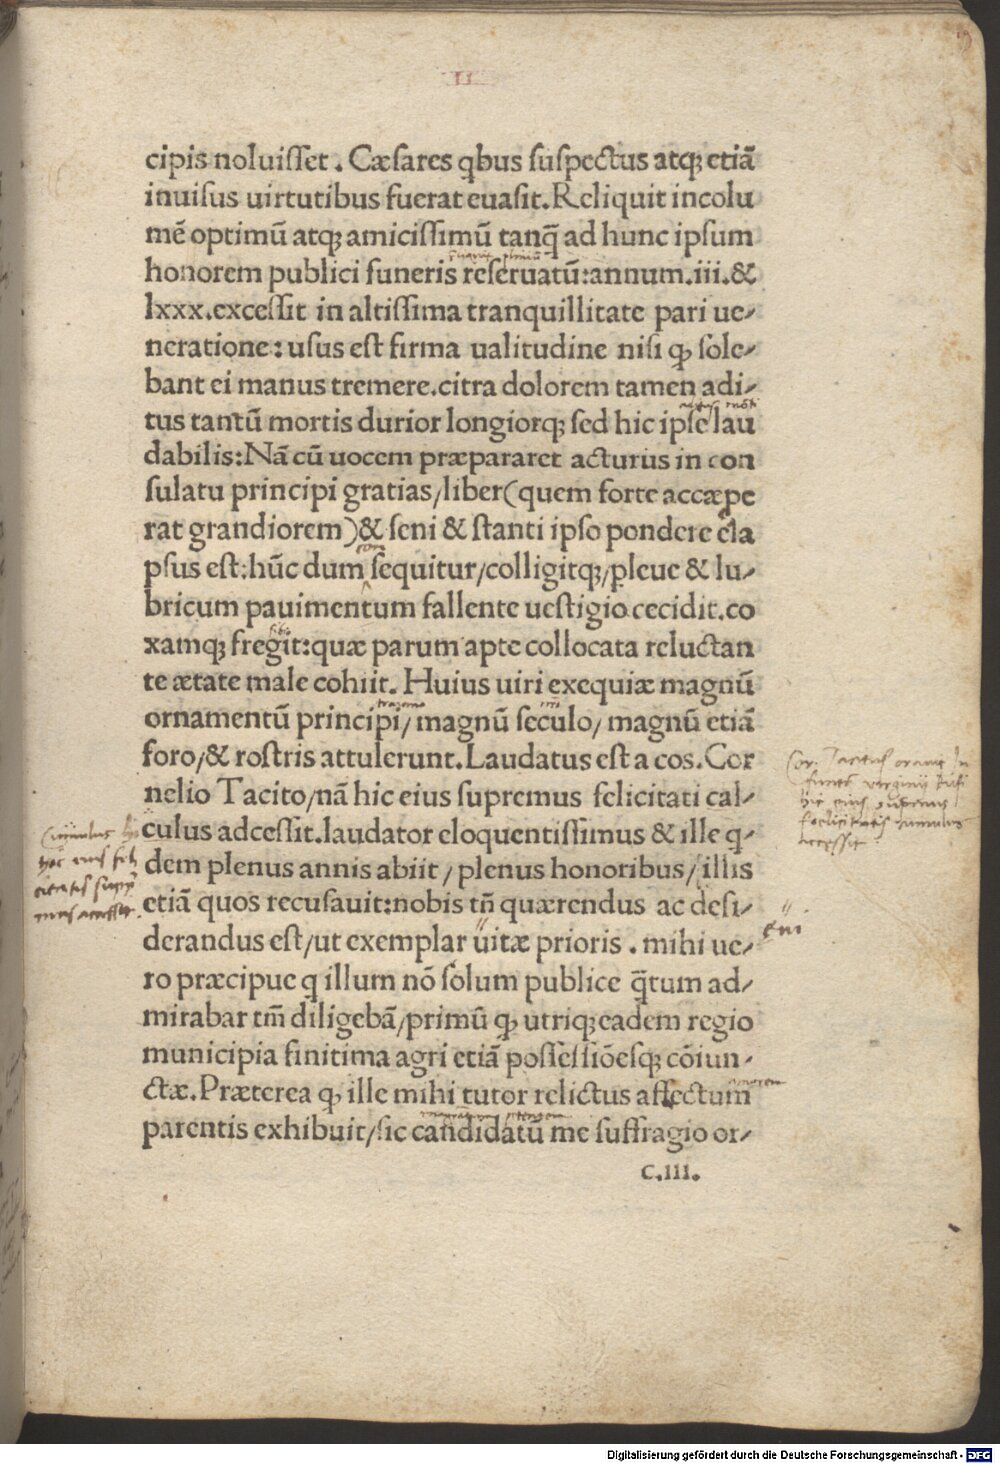 II
cipis noluisset. Cæsares qbus suspectus atqꝫ etiã
inuisus uirtutibus fuerat euasit. Reliquit incolu
mẽ optimũ atqꝫ amicissimũ tanq̃ ad hunc ipsum
honorem publici funeris reseruatũ: annum.iii.&
lxxx.excessit in altissima tranquillitate pari ue/
neratione: usus est firma ualitudine nisi ꝙ sole/
bant ei manus tremere.citra dolorem tamen adi/
tus tantũ mortis durior longiorqꝫ sed hic ipse lau
dabilis: Nã cũ uocem præpararet acturus in con
sulatu principi gratias/liber(quem forte accæpe
rat grandiorem)& seni & stanti ipso pondere ela
psus est:hũc dum sequitur/colligitqꝫ/ꝑ leue & lu/
bricum pauimentum fallente uestigio cecidit.co
xamqꝫ fregit:quæ parum apte collocata reluctan
te ætate male cohiit. Huius uiri exequiæ magnũ
ornamentũ principi/magnũ seculo/magnũ etiã
foro/& rostris attulerunt.Laudatus est a cos.Cor
nelio Tacito/nã hic eius supremus felicitati cal/
culus adcessit.laudator eloquentissimus & ille q/
dem plenus annis abiit/plenus honoribus/illis
etiã quos recusauit:nobis tñ quærendus ac desi/
derandus est/ut exemplar uitæ prioris. mihi ue/
ro præcipue q illum nõ solum publice q̃tum ad/
mirabar tm̃ diligebã/primũ ꝙ utriqꝫ eadem regio
municipia finitima agri etiã possessiõesqꝫ cõiun/
ctæ.Præterea ꝙ ille mihi tutor relictus affectum
parentis exhibuit/sic candidatũ me suffragio or/
c.iii.
Digitalisierung gefördert durch die Deutsche Forschungsgemeinschaft - DFG